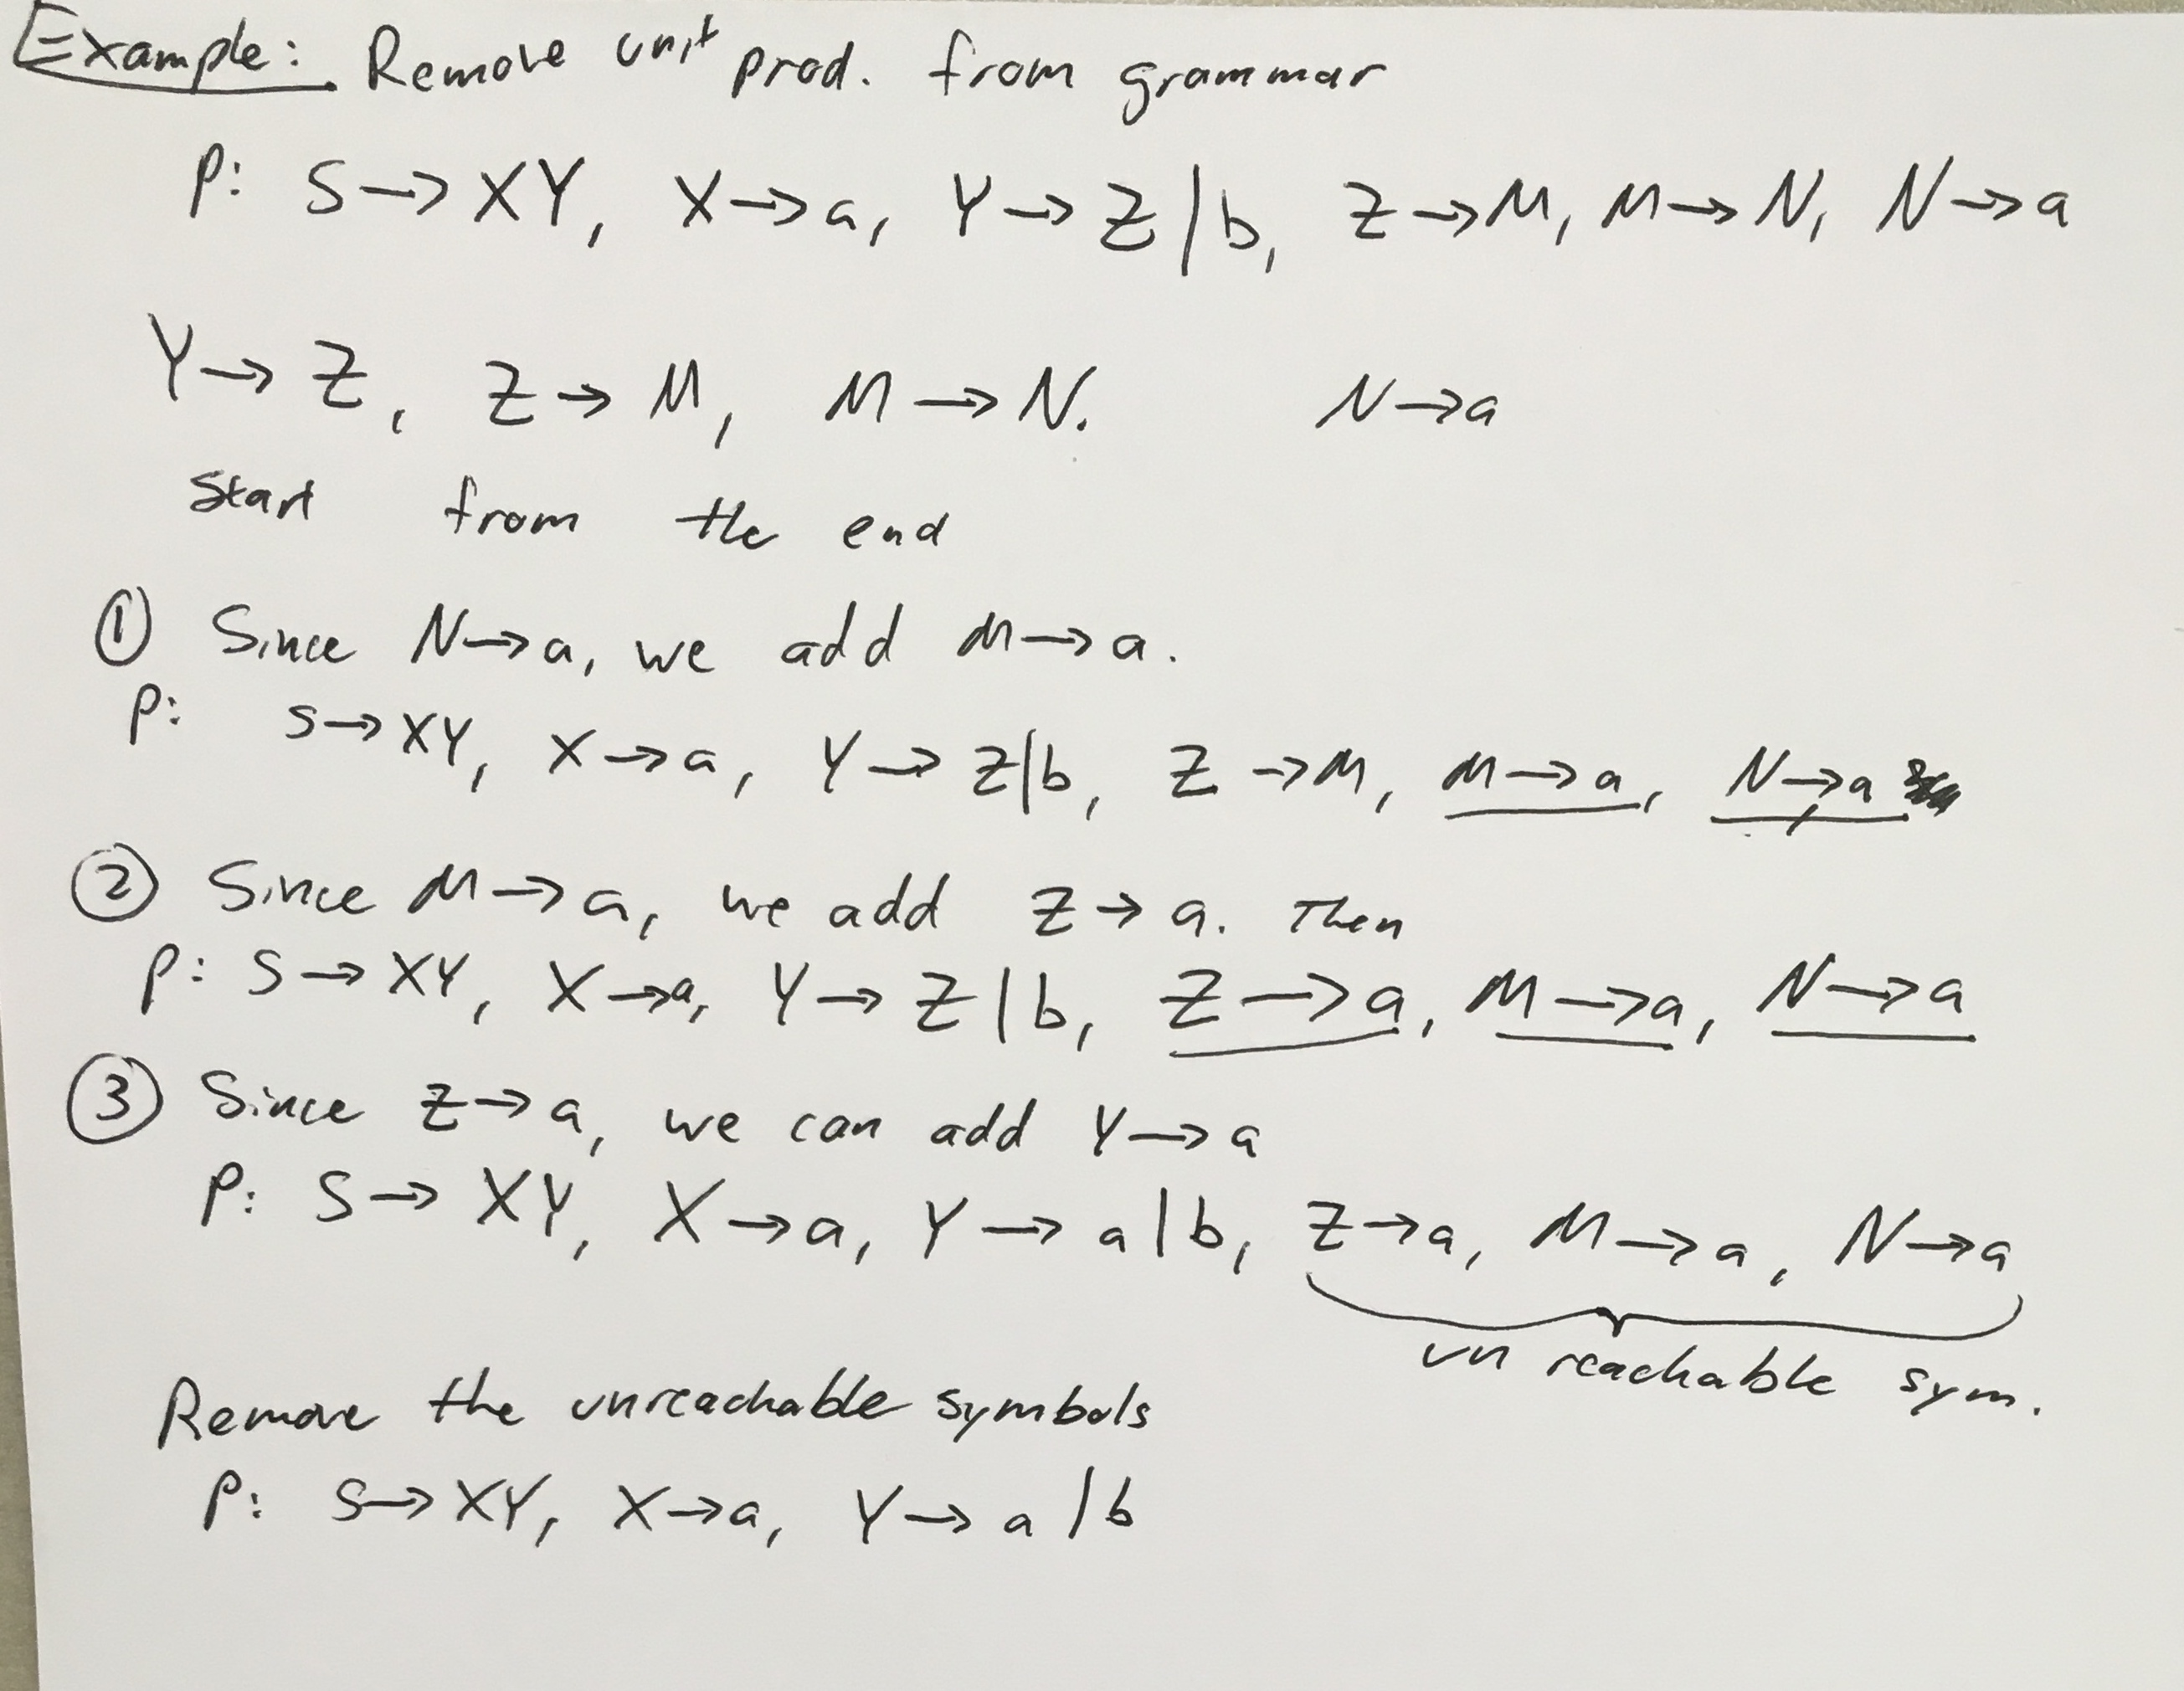 Example: Remove unit prod. from grammar
P: S → XY, X → a, Y → Z | b, Z → M, M → N, N → a
Y → Z, Z → M, M → N. N → a
Start from the end
① Since N → a, we add M → a.
P: S → XY, X → a, Y → Z | b, Z → M, M → a, N → a
② Since M → a, we add Z → a. Then
P: S → XY, X → a, Y → Z | b, Z → a, M → a, N → a
③ Since Z → a, we can add Y → a
P: S → XY, X → a, Y → a | b, Z → a, M → a, N → a
un reachable sym.
Remove the unreachable symbols
P: S → XY, X → a, Y → a | b